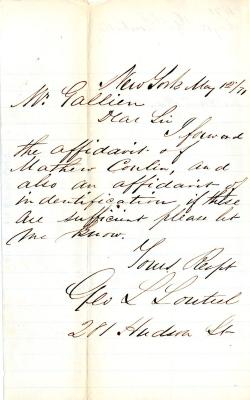 New York May 12th/71
Mr. Gallien
Dear Sir
I forward
the affidavit of
Mathew Conlin, and
also an affidavit of
indentification, if these
are sufficient please let
me know.
Yours Respt
Geo L
281 Hudson St